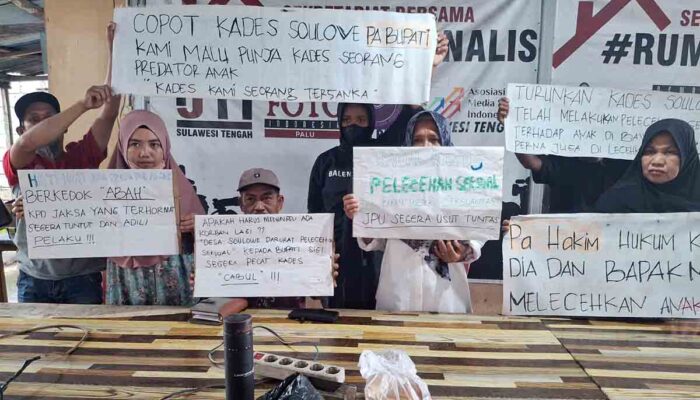 SEKRETARIAT BERSAMA
NALIS
SE
#RUM
COPOT KADES SOULOWE PA BUPATI
KAMI MALU PUNJA KADES SEORANG
PREDATOR ANAK
"KADES KAMI SEORANG TERSANKA"
SULAWESI TENGAH
FOTO
INDONESIA
PALU
Asosiasi
Media
Indone
SI TENG
TURUNKAN KADES SOULOWE
TELAH MELAKUKAN PELECEH
TERHADAP ANAK DI
PERNA JUGA DI LECEH
BERKEDOK "ABAH"
KPD JAKSA YANG TERHORMAT
SEGERA TUNTUT DAN ADILI
PELAKU !!!
BALEN
APAKAH HARUS MENUNGGU ADA
KORBAN LAGI ??
"DESA SOULOWE DARURAT PELECEH
SEKSUAL" KEPADA BUPATI SIGI
SEGERA PECAT KADES
"CABUL" !!!
PELECEHAN SEKSUAL
JPU SEGERA USUT TUNTAS
Pa HAKIM HUKUM K
DIA DAN BAPAK
MELECEHKAN ANAK